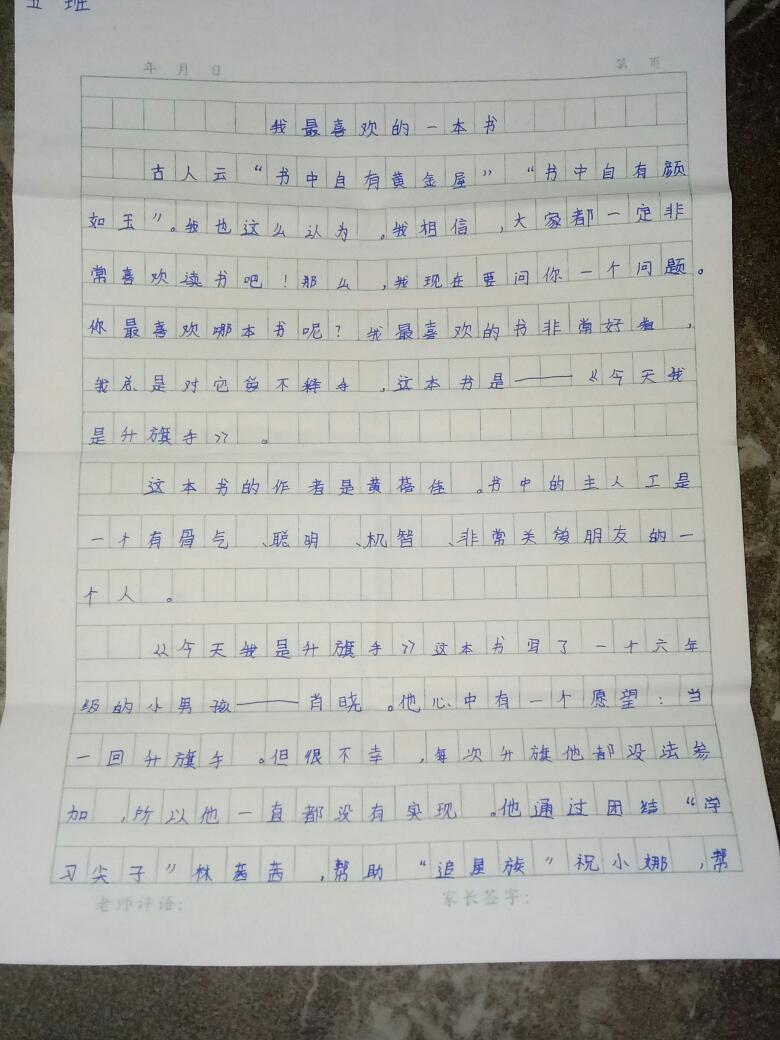 五 班
年 月 日 第 页
我最喜欢的一本书
古人云“书中自有黄金屋”“书中自有颜
如玉”。我也这么认为。我相信，大家都一定非
常喜欢读书吧！那么，我现在要问你一个问题。
你最喜欢哪本书呢？我最喜欢的书非常好看，
我总是对它爱不释手，这本书是——《今天我
是升旗手》。
这本书的作者是黄蓓佳。书中的主人工是
一个有骨气、聪明、机智、非常关爱朋友的一
个人。
《今天我是升旗手》这本书写了一个六年
级的小男孩——肖晓。他心中有一个愿望：当
一回升旗手。但很不幸，每次升旗他都没法参
加，所以他一直都没有实现。他通过团结“学
习尖子”林茜茜，帮助“追星族”祝小娜，帮
老师评语： 家长签字：